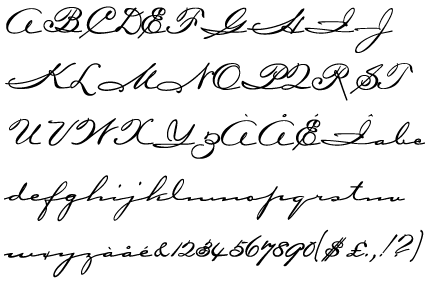 ABCDEFGHIJ
KLMNOPQRST
UVWXYZÀÅÉÎabc
defghijklmnopqrstuv
wxyzàåé&1234567890($£.,!?)